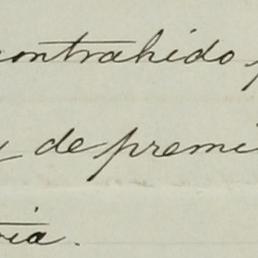 contrahido
de premi
ia.